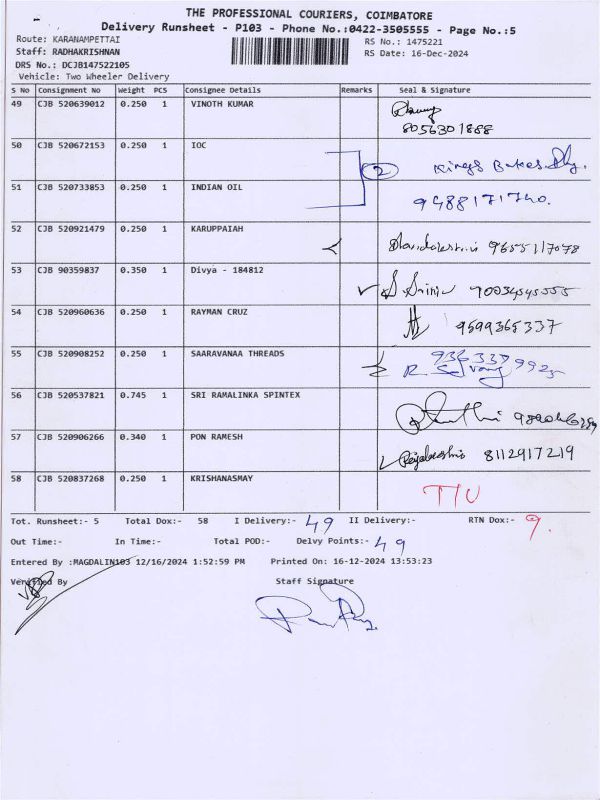 THE PROFESSIONAL COURIERS, COIMBATORE
Delivery Runsheet - P103 - Phone No.:0422-3505555 - Page No.:5
Route: KARANAMPETTAI
RS No.: 1475221
Staff: RADHAKRISHNAN
RS Date: 16-Dec-2024
DRS No.: DCJB147522105
Vehicle: Two Wheeler Delivery
S No Consignment No Weight PCS Consignee Details Remarks Seal & Signature
49 CJB 520639012 0.250 1 VINOTH KUMAR
8056301888
50 CJB 520672153 0.250 1 IOC
2 Kings Bakes
51 CJB 520733853 0.250 1 INDIAN OIL
9488171740.
52 CJB 520921479 0.250 1 KARUPPAIAH
9655117078
53 CJB 90359837 0.350 1 Divya - 184812
54 CJB 520960636 0.250 1 RAYMAN CRUZ
9599365337
55 CJB 520908252 0.250 1 SAARAVANAA THREADS
936 339 9925
56 CJB 520537821 0.745 1 SRI RAMALINKA SPINTEX
57 CJB 520906266 0.340 1 PON RAMESH
8112917219
58 CJB 520837268 0.250 1 KRISHANASMAY
T/U
Tot. Runsheet:- 5 Total Dox:- 58 I Delivery:- 49 II Delivery:- RTN Dox:- 9.
Out Time:- In Time:- Total POD:- Delvy Points:- 49
Entered By :MAGDALIN103 12/16/2024 1:52:59 PM Printed On: 16-12-2024 13:53:23
Verified By Staff Signature